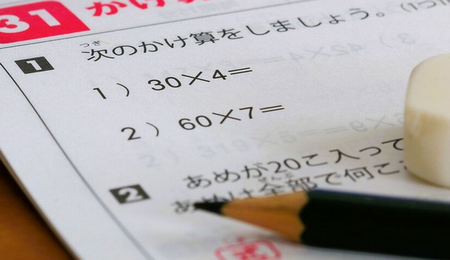 31 かけ算
1 次のかけ算をしましょう。(1つ1
1) 30×4=
2) 60×7=
2 あめが20こ入って
あめは全部で何こ